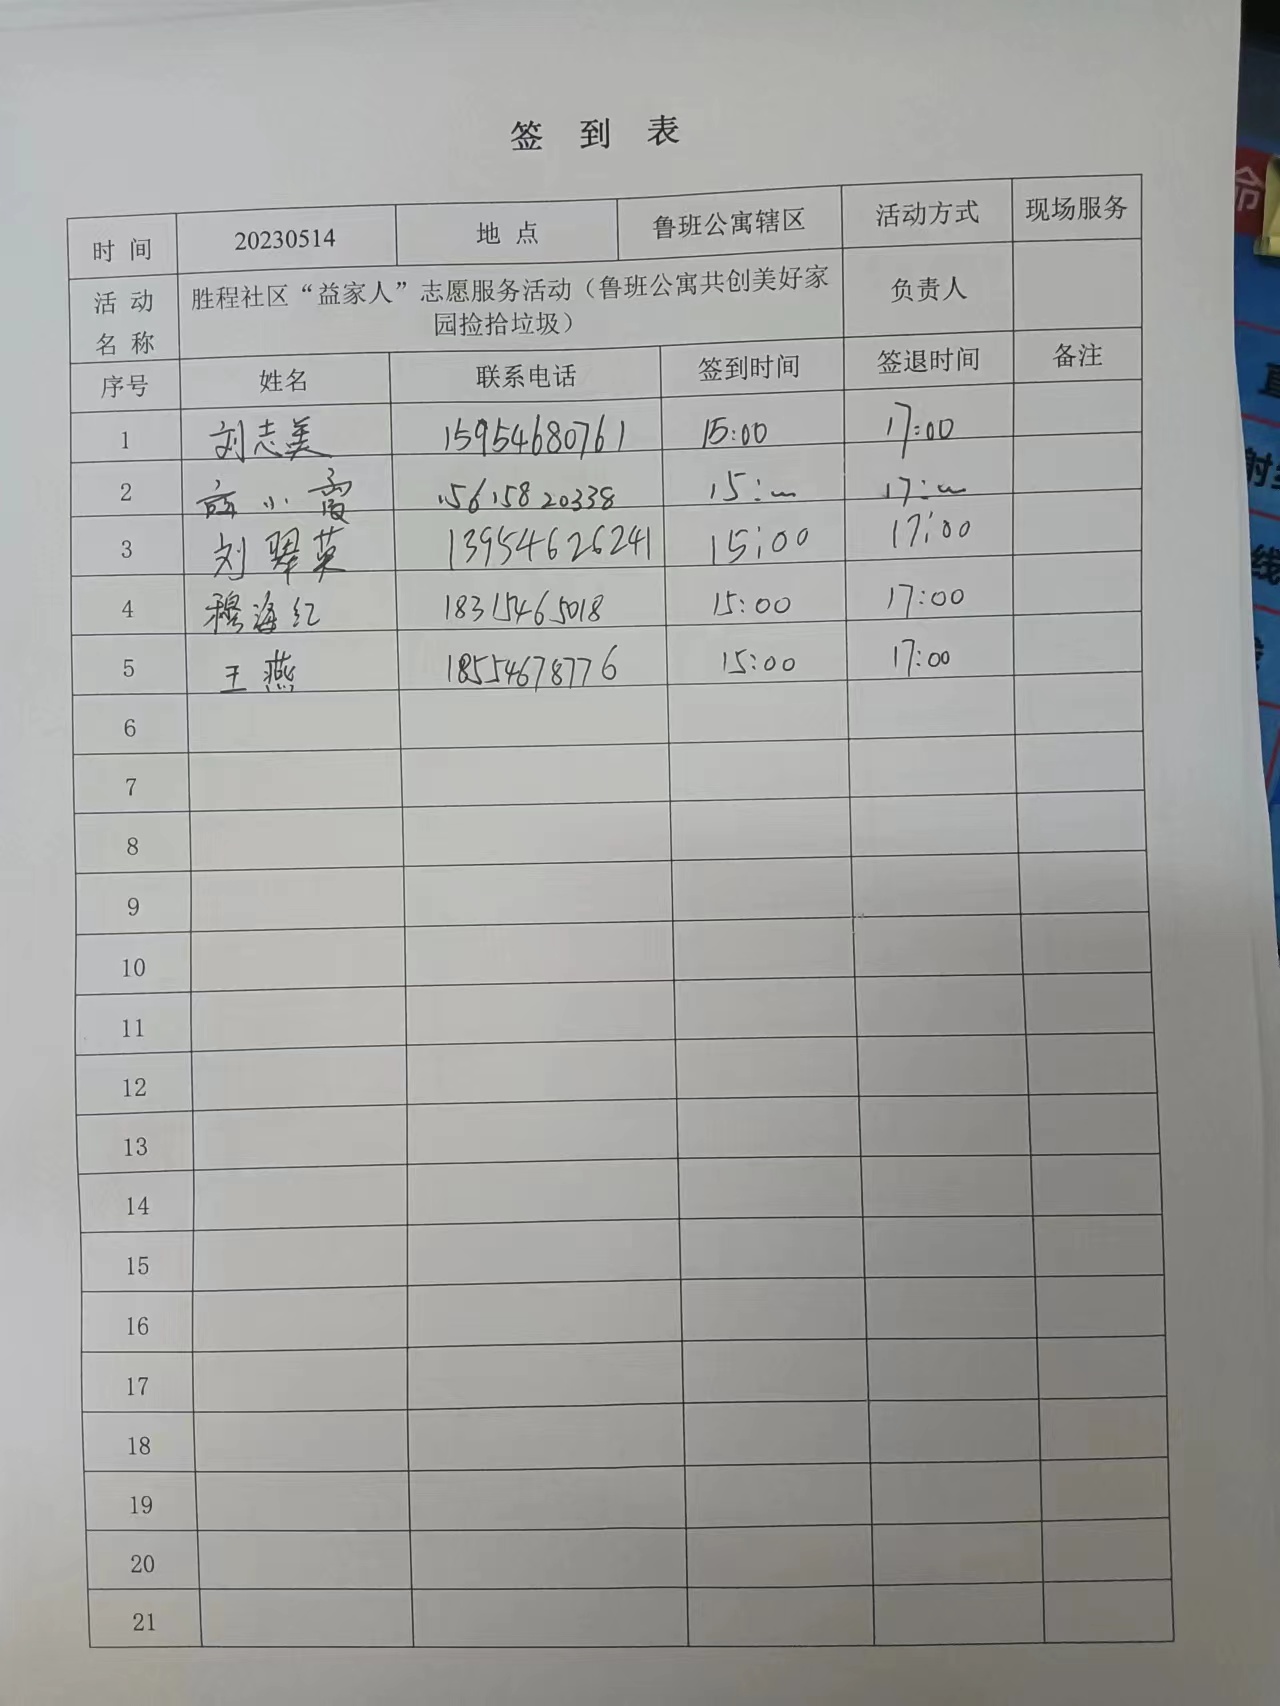 签 到 表
时 间 20230514 地 点 鲁班公寓辖区 活动方式 现场服务
活 动 名 称 胜程社区“益家人”志愿服务活动（鲁班公寓共创美好家
园捡拾垃圾） 负责人
序号 姓名 联系电话 签到时间 签退时间 备注
1 刘志美 15954680761 15:00 17:00
2 小霞 15615820338 15:00 17:00
3 刘翠英 13954626241 15:00 17:00
4 穆海红 18315465018 15:00 17:00
5 王燕 18554678776 15:00 17:00
6
7
8
9
10
11
12
13
14
15
16
17
18
19
20
21
命
直
射
线